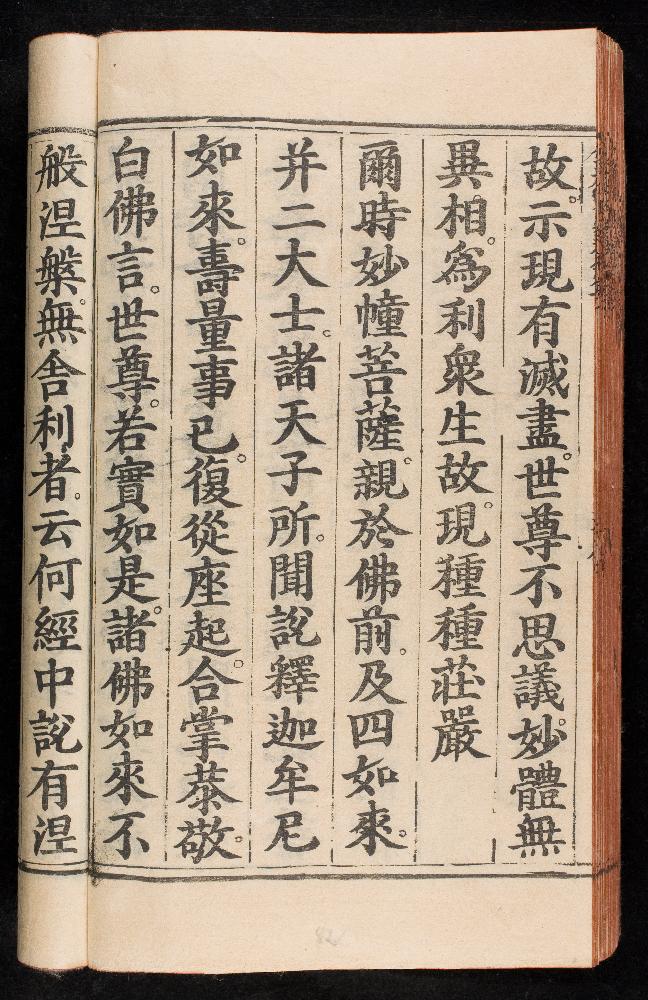 故。示現有滅盡。世尊不思議。妙體無
異相。爲利衆生故。現種種莊嚴
爾時妙幢菩薩。親於佛前。及四如來。
并二大士。諸天子所。聞說釋迦牟尼
如來。壽量事已。復從座起。合掌恭敬。
白佛言。世尊。若實如是。諸佛如來不
般涅槃。無舍利者。云何經中說有涅